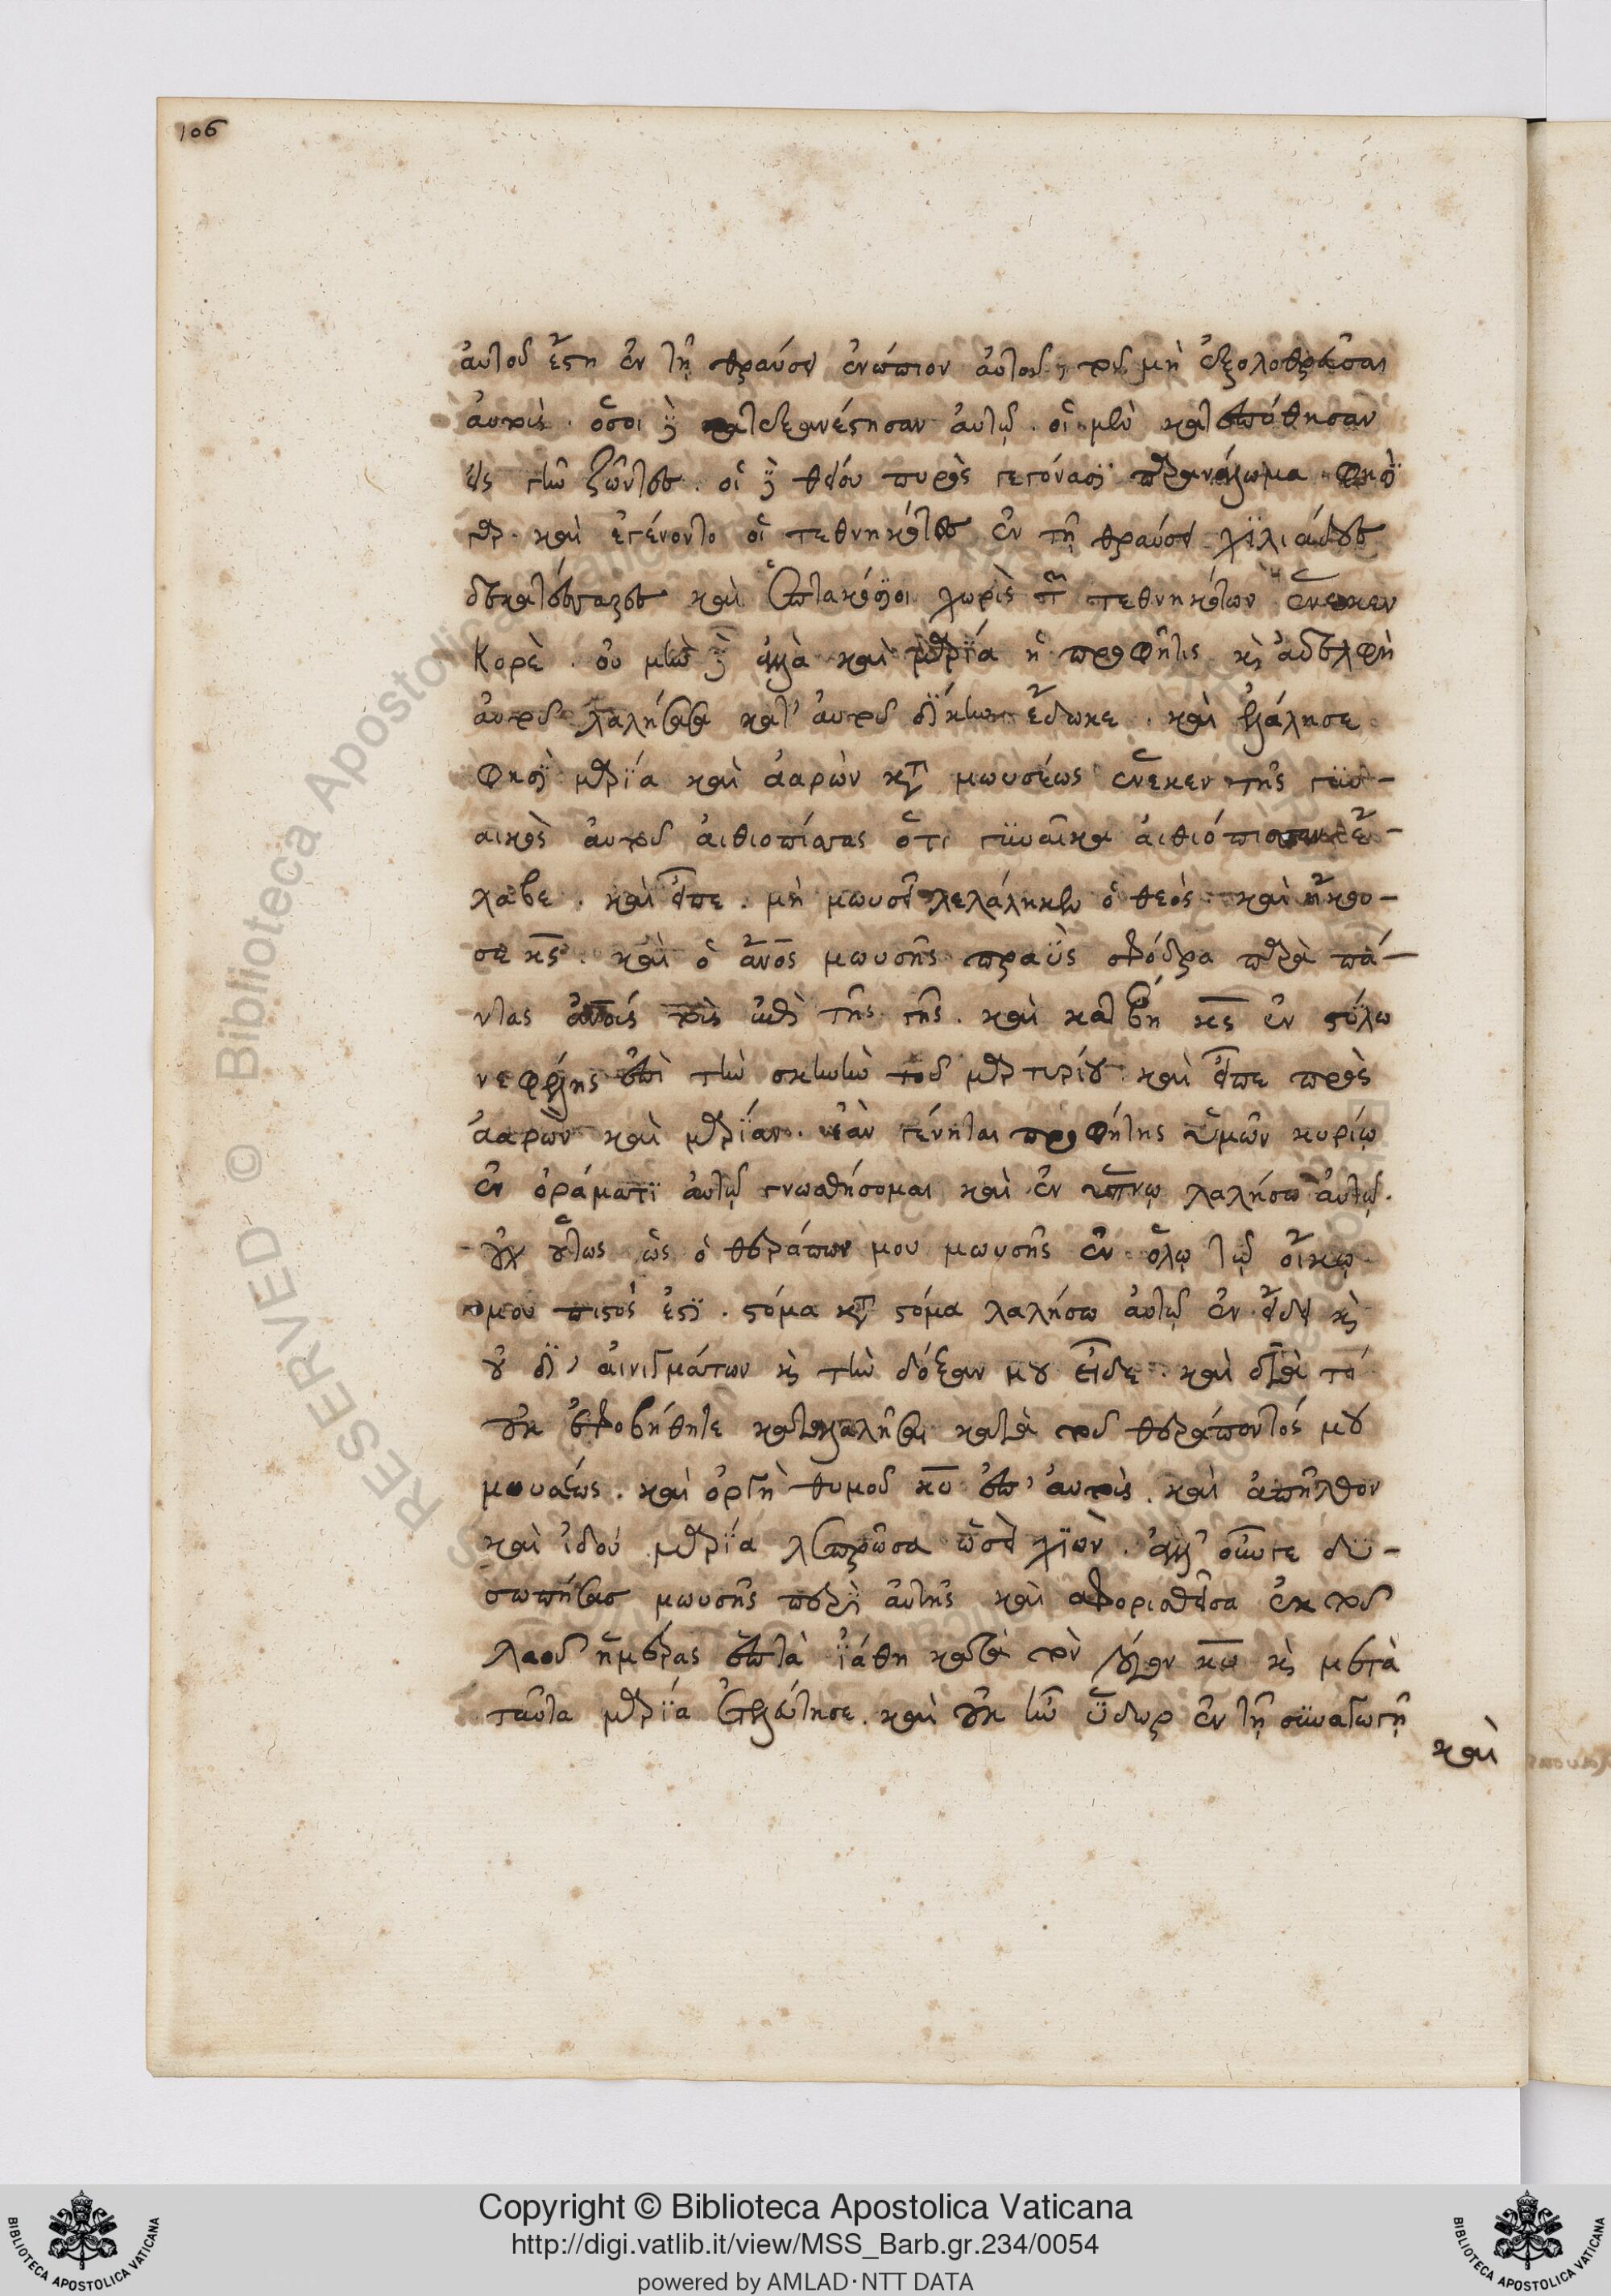 106
αὐτοῦ ἔστη ἐν τῇ θραύσει ἐνώπιον αὐτοῦ, τοῦ μὴ ἐξολοθρεῦσαι
αὐτούς. ὅσοι δὲ κατεξανέστησαν αὐτῷ. οἱ μὲν κατεπόθησαν
εἰς γῆν ζῶντες. οἱ δὲ θείου πυρὸς γεγόνασϊ παρανάλωμα. φησὶ
γὰρ. καὶ ἐγένοντο οἱ τεθνηκότες ἐν τῇ θραύσει χϊλιάδες
δεκατέσσαρες καὶ ἑπτακόσϊοι χωρὶς τῶν τεθνηκότων ἕνεκεν
Κορὲ. οὐ μὴν δὲ ἀλλὰ καὶ μαρϊά ἡ προφῆτις κὶ ἀδελφὴ
αὐτοῦ λαλήσασα κατ' αὐτοῦ δίκην ἔδωκε. καὶ ἐλάλησε
φησϊ μαρϊά καὶ ἀαρὼν κατὰ μωυσέως ἕνεκεν τῆς γϋν-
αικὸς αὐτοῦ αἰθιοπίσσας ὅτι γϋναῖκα αἰθιόπισσαν ἔ-
λαβε. καὶ εἶπε. μὴ μωυσεῖ λελάληκεν ὁ θεός. καὶ ἤκου-
σε κς. καὶ ὁ ἄνος μωυσῆς πραϋς σφόδρα παρὰ πά-
ντας ἀνους τοὺς ἐπὶ τῆς γῆς. καὶ κατέβη κς ἐν στύλω
νεφέλης ἐπὶ τὴν σκηνὴν τοῦ μαρτυρίου. καὶ εἶπε πρὸς
ἀαρὼν καὶ μαρϊάν. ἐὰν γένηται προφήτης ὑμῶν κυρίῳ
ἐν ὁράματϊ αὐτῷ γνωσθήσομαι καὶ ἐν ὕπνῳ λαλήσω αὐτῷ.
οὐχ οὕτως ὡς ὁ θεράπων μου μωυσῆς ἐν ὅλῳ τῷ οἴκῳ
μου πιστός ἐστϊ. στόμα κατὰ στόμα λαλήσω αὐτῷ ἐν εἴδει κὶ
οὐ δι' αἰνιγμάτων κὶ τὴν δόξαν μου εἶδε. καὶ διὰ τί
οὐκ ἐφοβήθητε καταλαλῆσαι κατὰ τοῦ θεράποντός μου
μωυσέως. καὶ ὀργὴ θυμοῦ κυ ἐπ' αὐτούς. καὶ ἀπῆλθον
καὶ ἰδοὺ μαρϊά λεπρῶσα ὡσεὶ χϊὼν. ἀλλ' οὖν γε δϋ-
σωπήσας μωυσῆς περὶ αὐτῆς καὶ ἀφορισθεῖσα ἐκ τοῦ
λαοῦ ἡμέρας ἑπτὰ ἰάθη κατὰ τὸν λόγον κυ κὶ μετὰ
ταῦτα μαρϊά ἐτελεύτησε. καὶ οὐκ ἦν ὕδωρ ἐν τῇ σϋναγωγῇ
καὶ
RESERVED © Biblioteca Apostolica
Copyright © Biblioteca Apostolica Vaticana
http://digi.vatlib.it/view/MSS_Barb.gr.234/0054
powered by AMLAD·NTT DATA
BIBLIOTECA APOSTOLICA VATICANA
BIBLIOTECA APOSTOLICA VATICANA